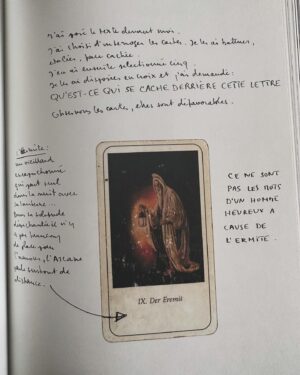 J'ai posé le texte devant moi.
J'ai choisi d'interroger les cartes. Je les ai battues,
étalées, face cachée.
J'en ai ensuite sélectionné cinq.
Je les ai disposées en croix et j'ai demandé:
QU'EST-CE QUI SE CACHE DERRIÈRE CETTE LETTRE
Observons les cartes, elles sont défavorables.
L'Ermite:
un vieillard
encapuchonné
qui part seul
dans la nuit avec
sa lanterne...
dans la solitude
il y
a peu beaucoup
de place pour
l'amour, l'Arcane
parle surtout de
distance.
IX. Der Eremit
CE NE SONT
PAS LES MOTS
D'UN HOMME
HEUREUX A
CAUSE DE
L'ERMITE.